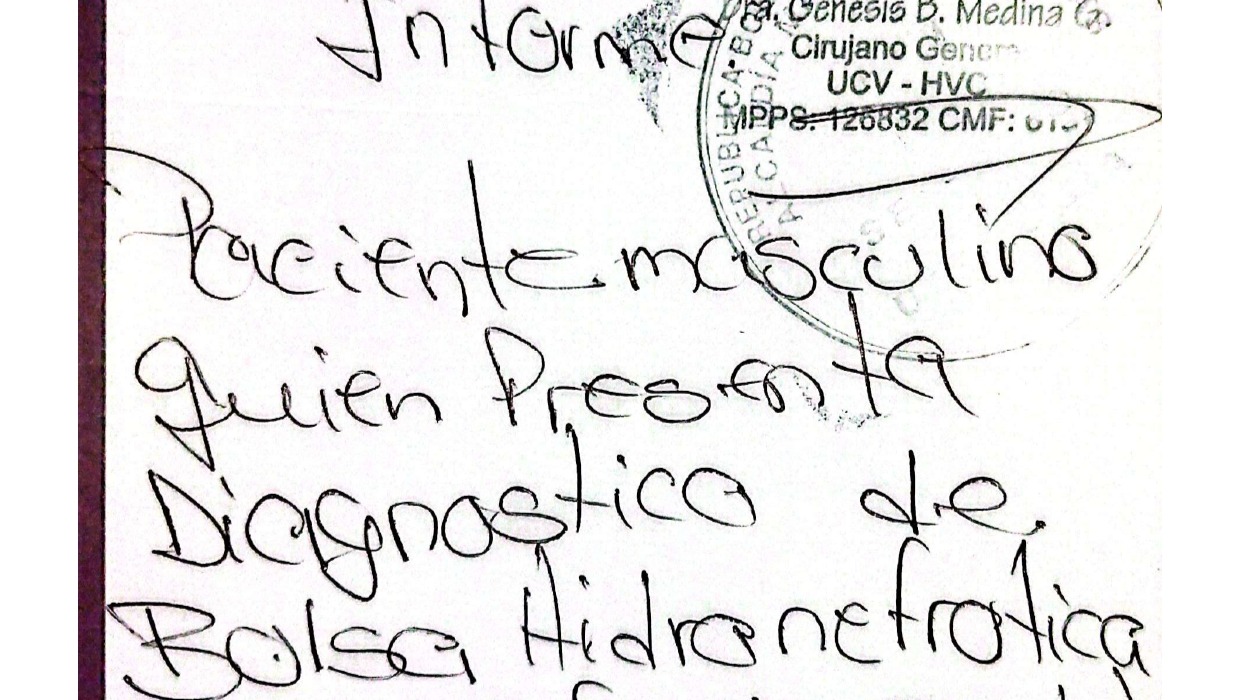 Informe
Dra. Genesis D. Medina G.
Cirujano General
UCV - HVC
MPPS: 126832 CMF:
REPUBLICA BO
ALCALDIA
Paciente masculino
quien Presenta
Diagnostico de
Bolsa Hidronefrotica